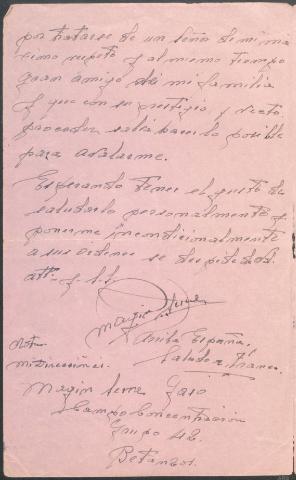 por tratarse de un señor de mi ma
ximo respeto y al mismo tiempo
gran amigo de mi familia
y que con su prestigio y recto
proceder, sabra hacer lo posible
para avalarme.
Esperando tener el gusto de
saludarlo personalmente y
ponerme incondicionalmente
a sus ordenes se despide de Vd.
att. y s.s.
Magin Serra
Arriba España.
Saludo a Franco.
Nota
mi direccion es.
Magin Serra Gaso
Campo Concentracion
Grupo 42.
Betanzos.